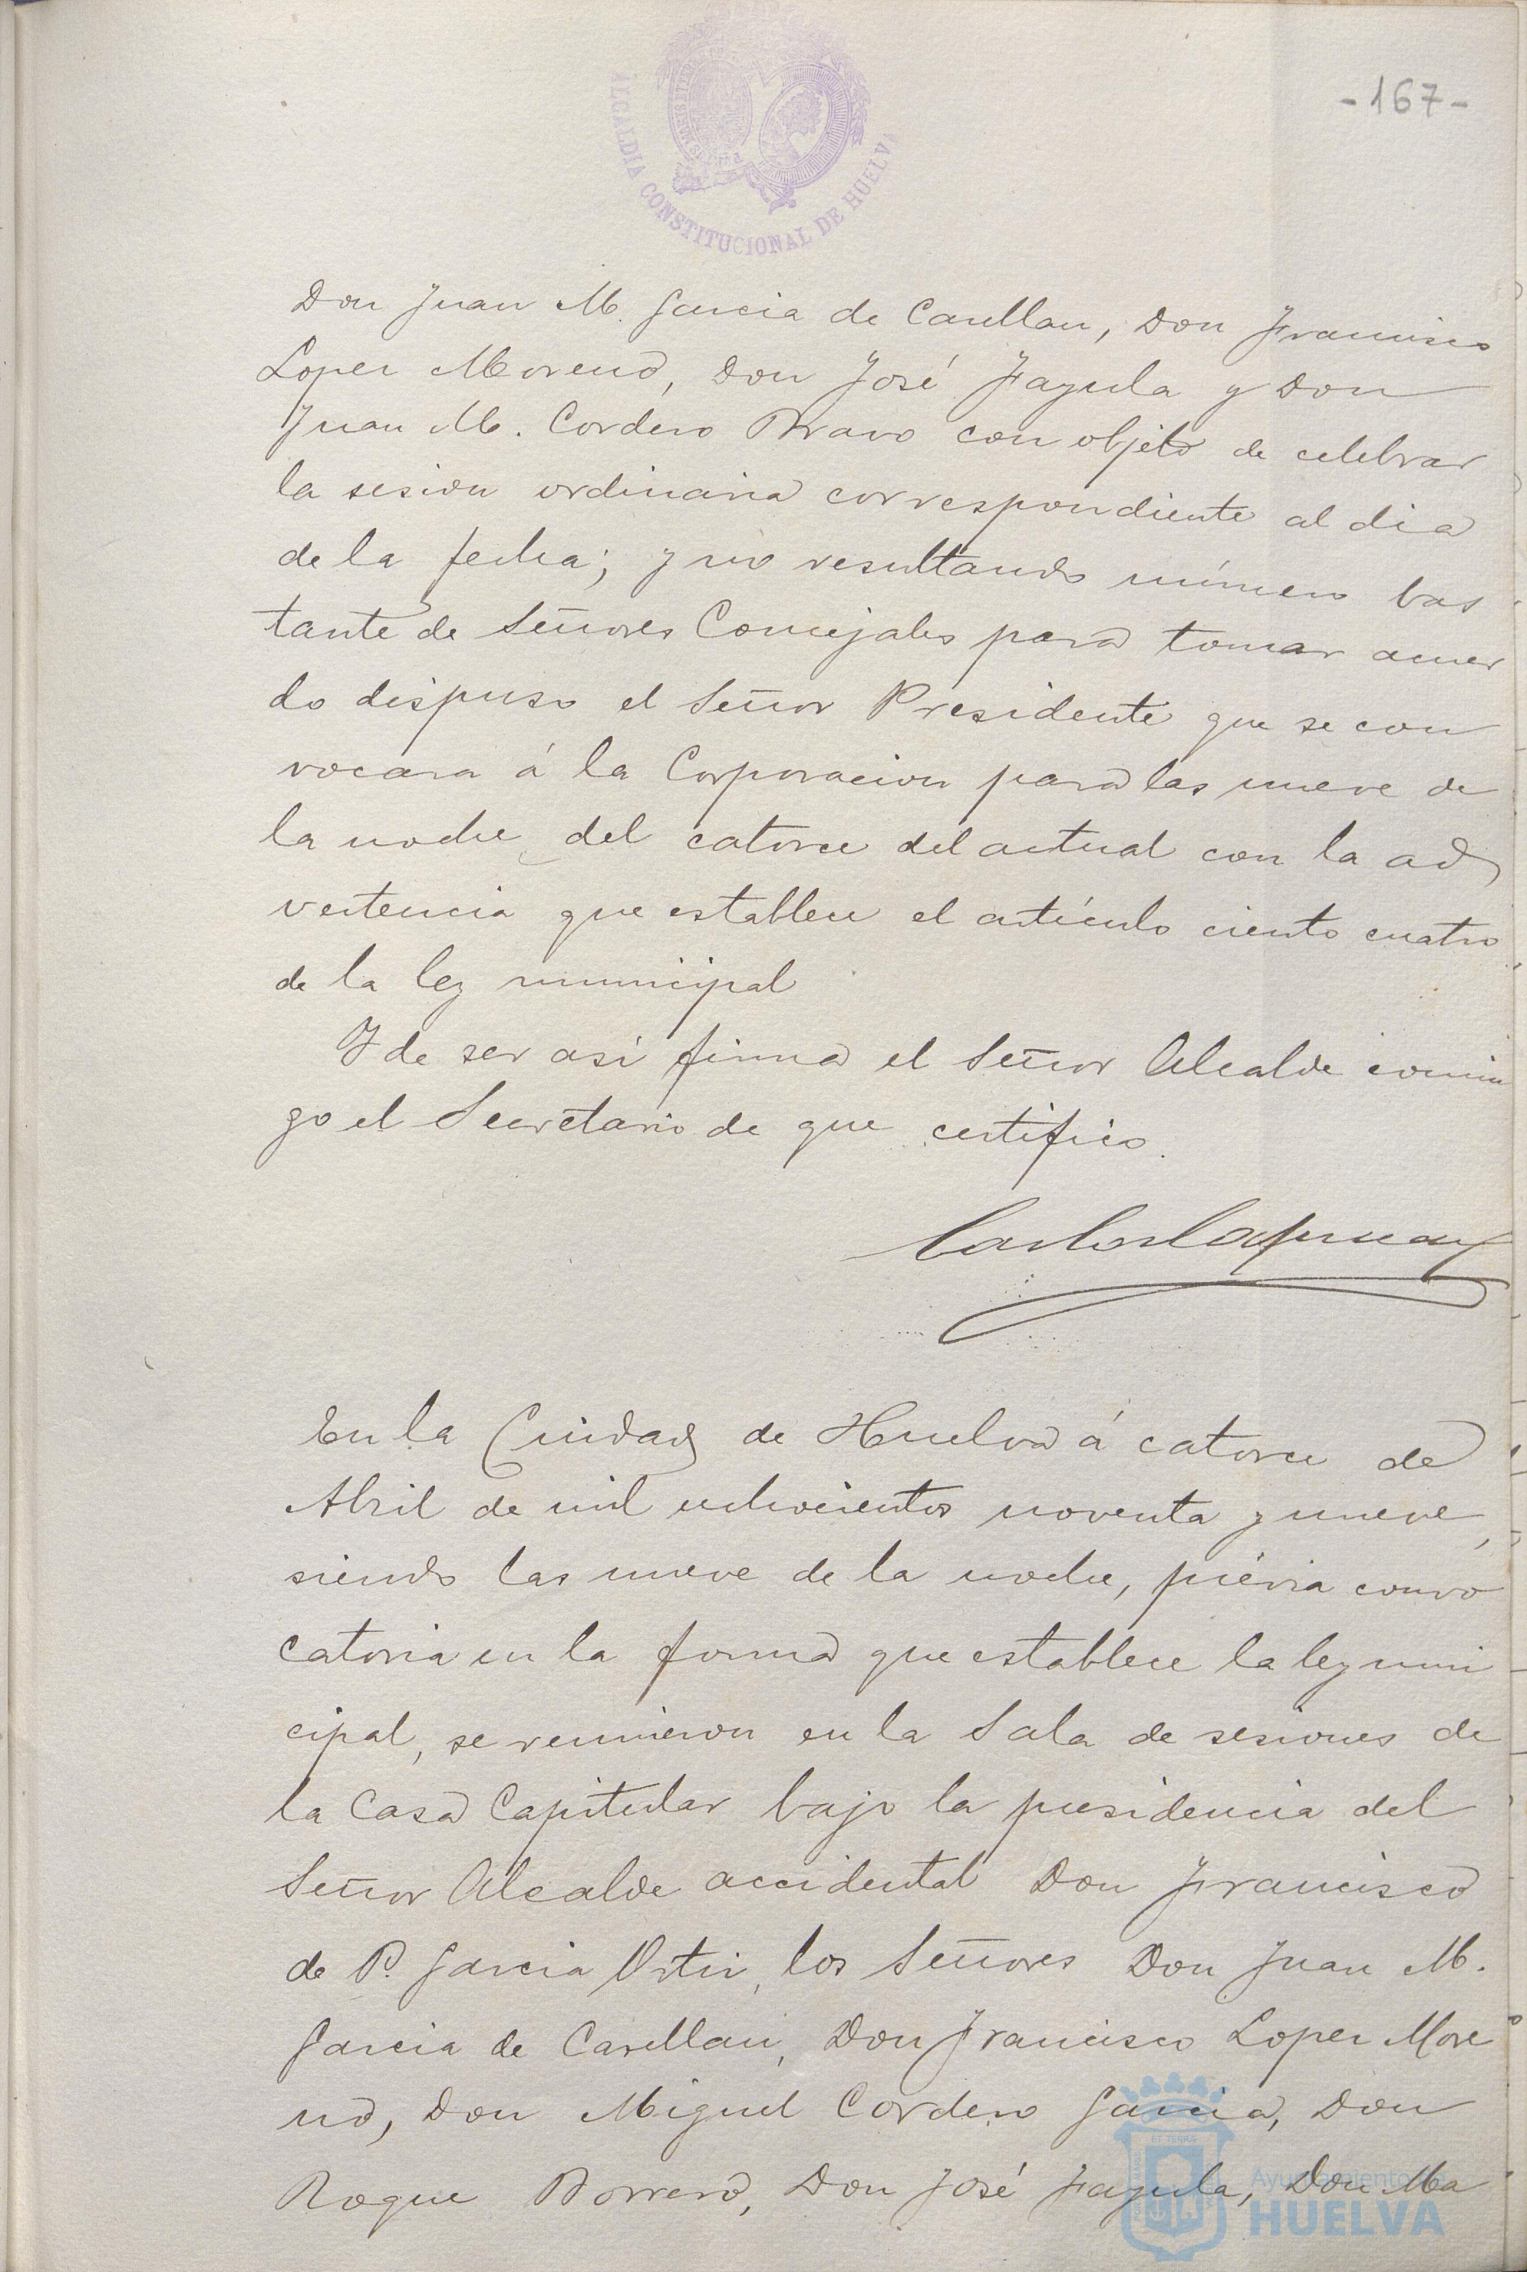 ALCALDIA CONSTITUCIONAL DE HUELVA
-167-
Don Juan M. Garcia de Carellan, Don Francisco
Loper Moreno, Don José Fayula y Don
Juan M. Cordero Bravo con objeto de celebrar
la sesion ordinaria correspondiente al dia
de la fecha; y no resultando número bas
tante de Señores Concejales para tomar acuer
do dispuso el Señor Presidente que se con
vocara á la Corporacion para las nueve de
la noche del catorce del actual con la ad
vertencia que establece el artículo ciento cuatro
de la ley municipal
Y de ser asi firma el Señor Alcalde conmi
go el Secretario de que certifico.
En la Ciudad de Huelva á catorce de
Abril de mil ochocientos noventa y nueve,
siendo las nueve de la noche, prévia convo
catoria en la forma que establece la ley muni
cipal, se reunieron en la Sala de sesiones de
la Casa Capitular bajo la presidencia del
Señor Alcalde accidental Don Francisco
de P. Garcia Ortiz, los Señores Don Juan M.
Garcia de Carellan, Don Francisco Loper More
no, Don Miguel Cordero Garcia, Don
Roque Borrero, Don José Fayula, Don Ma
Ayuntamiento de
HUELVA